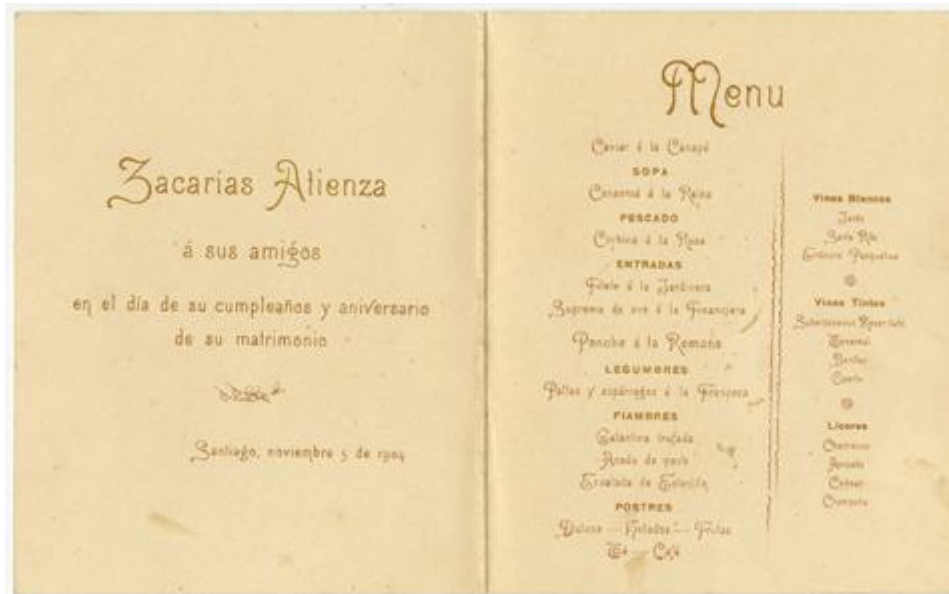 Zacarias Atienza
á sus amigos
en el día de su cumpleaños y aniversario
de su matrimonio
Santiago, noviembre 5 de 1904
Menu
Caviar á la Canapé
SOPA
Consomé á la Reina
PESCADO
Corbina á la
ENTRADAS
Filete á la Jardinera
Suprema de ave á la Financiera
Ponche á la Romana
LEGUMBRES
Paltas y espárragos á la Francesa
FIAMBRES
Galantina trufada
Asado de pavo
Ensalada de Estación
POSTRES
Dulces — Helados — Frutas
Té — Café
Vinos Blancos
Jerés
Santa Rita
Errázuriz Panquehue
Vinos Tintos
Subercaseaux Reservado
Licores